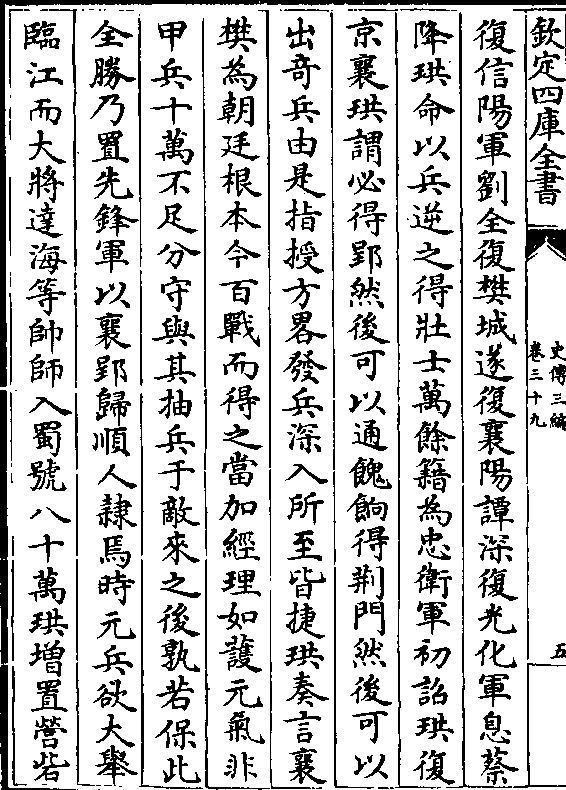 欽定四庫全書
史傳三編
卷三十九
五
復信陽軍劉全復樊城遂復襄陽譚深復光化軍息蔡
降珙命以兵逆之得壯士萬餘籍為忠衛軍初詔珙復
京襄珙謂必得郢然後可以通餽餉得荆門然後可以
出奇兵由是指授方畧發兵深入所至皆捷珙奏言襄
樊為朝廷根本今百戰而得之當加經理如護元氣非
甲兵十萬不足分守與其抽兵于敵來之後孰若保此
全勝乃置先鋒軍以襄郢歸順人隷焉時元兵欲大舉
臨江而大將達海等帥師入蜀號八十萬珙增置營砦